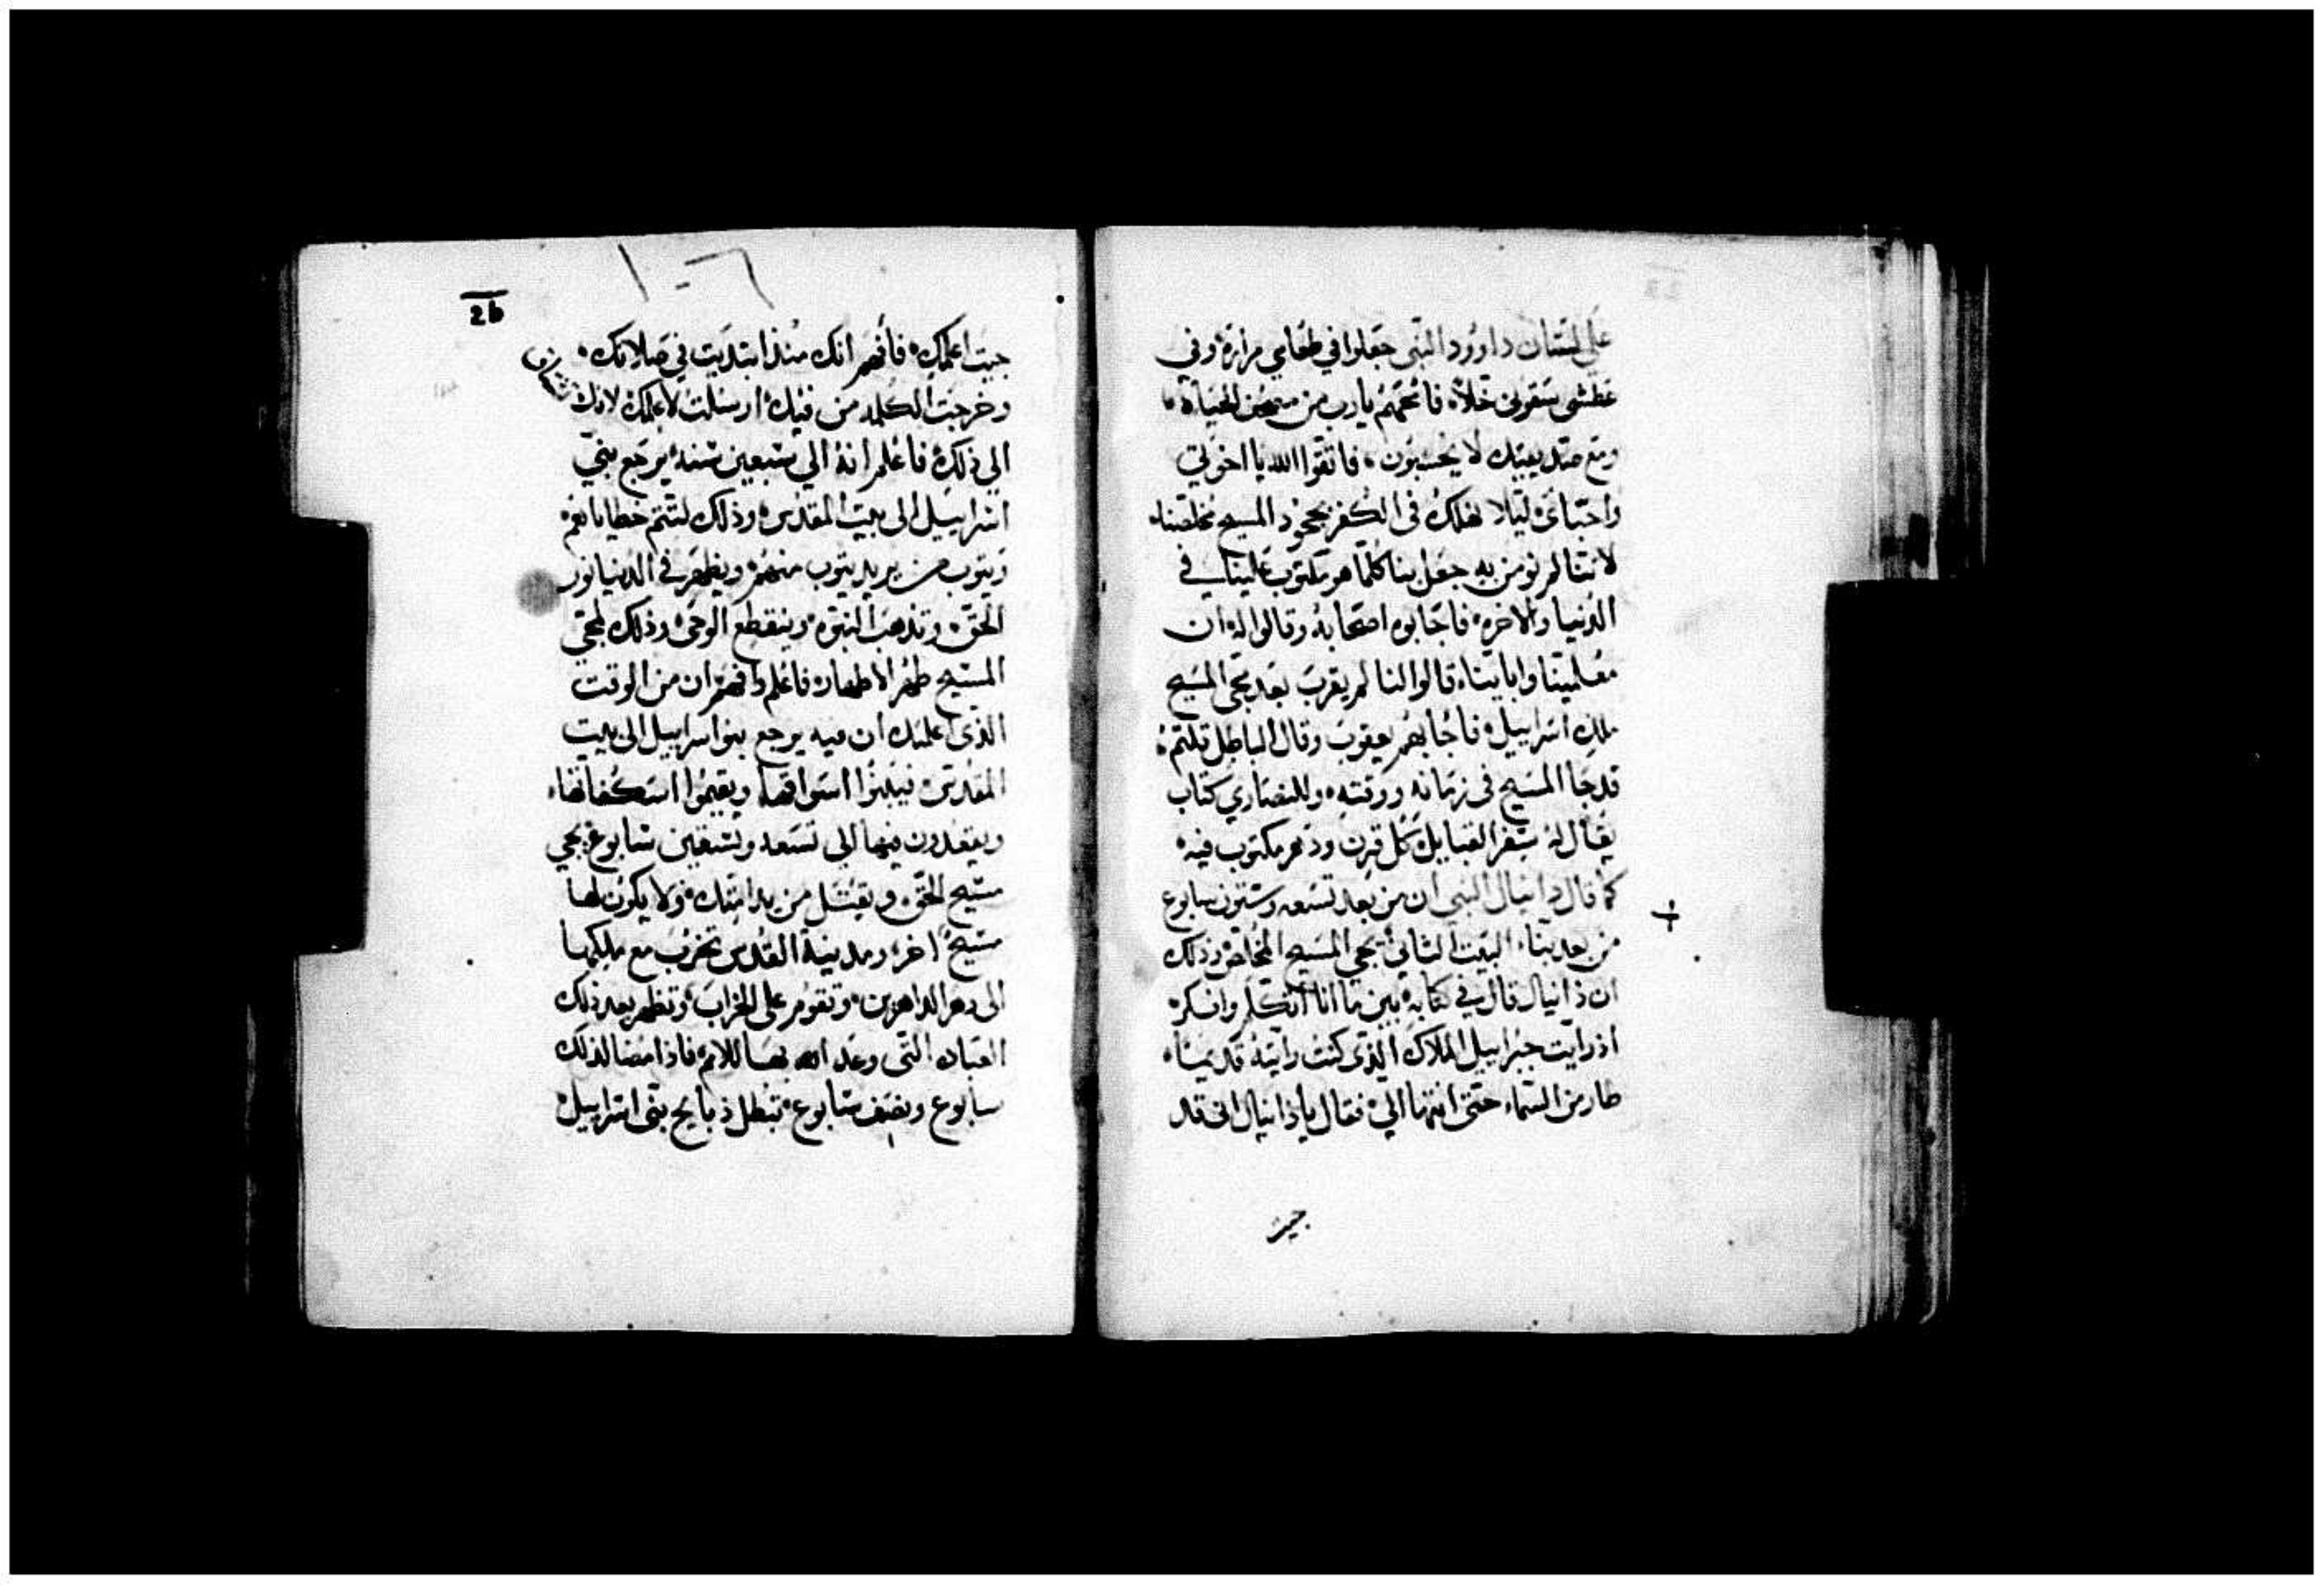 على لسان داوود النبى جعلوا في طعامي مرارة وفي
عطشى سقونى خلا فامحهم يارب من مصحف الحياة
ومع صديقيك لا يحسبون فاتقوا الله يا اخوتي
واحباى ليلا نهلك فى الكفر بجحود المسيح مخلصنا
لاننا لم نومن به جعل بنا كلما هو مكتوب علينا في
الدنيا والاخرة فاجابوه اصحابه وقالوا له ان
معلمينا وابايناه قالوا لنا لم يقرب بعد مجى المسيح
ملك اسراييل فاجابهم يعقوب وقال الباطل قلتم
قد جا المسيح فى زمانه ووقته وللنصاري كتاب
يقال له سفر القبايل كل قرن ودهر مكتوب فيه
كما قال دانيال النبي ان من بعد تسعه وستون سابوع
من بعد بناء البيت الثانى يجي المسيح المخلص وذلك
ان دانيال قال في كتابه بين ما انا اتكلم وافكر
اذ رايت جبراييل الملاك الذى كنت رايته قديما
طار من السماء حتى انتها الي فقال يا دانيال انى قد
جيت
26
جيت اعلمك فافهم انك منذ ابتديت في صلاتك
وخرجت الكلمه من فيك ارسلت لاعلمك لانك
الى ذلك فاعلم انه الي سبعين سنه يرجع بني
اسراييل الى بيت المقدس وذلك لتتم خطاياهم
ويتوب من يريد يتوب منهم ويظهر في الدنيا نور
الحق وتذهب النبوه وينقطع الوحى وذلك لمجى
المسيح طهر الاطهار فاعلم وافهم ان من الوقت
الذى اعلمك ان فيه يرجع بنو اسراييل الى بيت
المقدس فيبنوا اسواقها ويقيموا
ويقعدون فيها الى تسعه وستين سابوع يجي
مسيح الحق ويقتل من يد امتك ولا يكون لها
مسيح اخر ومدينة القدس تخرب مع ملكها
الى دهر الداهرين وتقوم على الخراب وتظهر بعد ذلك
العباده التى وعد الله بها للامم فاذا مضا لذلك
سابوع ونصف سابوع تبطل ذبايح بنى اسراييل